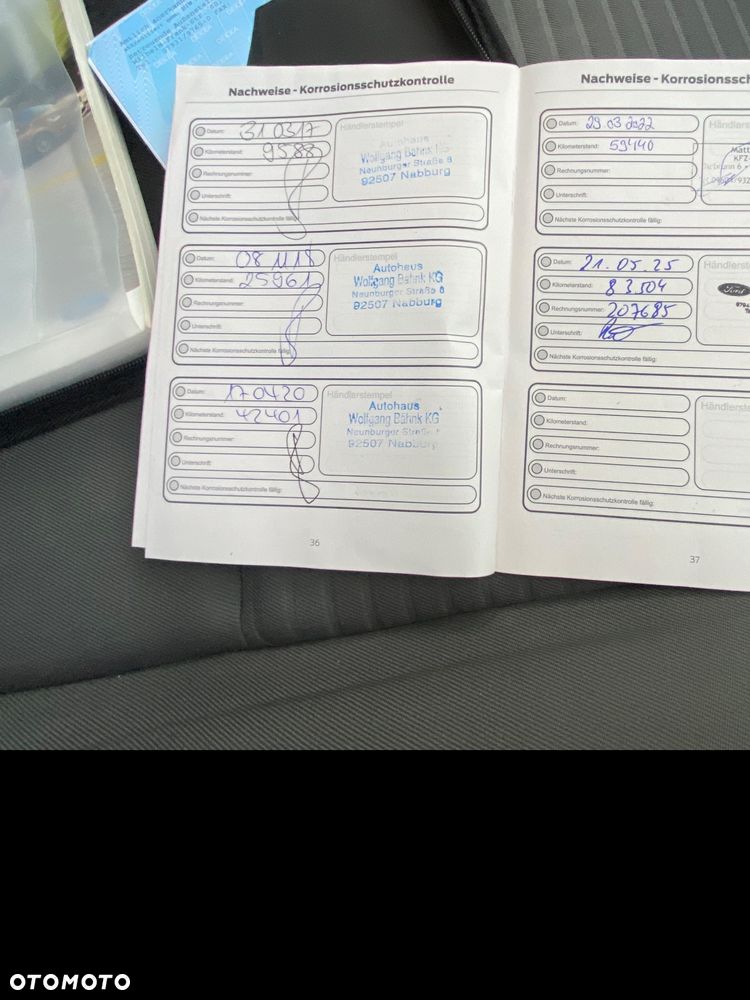 DEKRA
Nachweise - Korrosionsschutzkontrolle
Datum: 31 03 17
Kilometerstand: 9588
Rechnungsnummer:
Unterschrift:
Nächste Korrosionsschutzkontrolle fällig:
Händlerstempel
Autohaus
Wolfgang Bähnk KG
Neunburger Straße 8
92507 Nabburg
Datum: 08 11 18
Kilometerstand: 25961
Rechnungsnummer:
Unterschrift:
Nächste Korrosionsschutzkontrolle fällig:
Händlerstempel
Autohaus
Wolfgang Bähnk KG
Neunburger Straße 8
92507 Nabburg
Datum: 17 04 20
Kilometerstand: 42401
Rechnungsnummer:
Unterschrift:
Nächste Korrosionsschutzkontrolle fällig:
Händlerstempel
Autohaus
Wolfgang Bähnk KG
Neunburger Straße
92507 Nabburg
36
Nachweise - Korrosionssch
Datum: 29 03 2022
Kilometerstand: 59440
Rechnungsnummer:
Unterschrift:
Nächste Korrosionsschutzkontrolle fällig:
Händlers
KFZ
Datum: 21.05.25
Kilometerstand: 83504
Rechnungsnummer: 207685
Unterschrift:
Nächste Korrosionsschutzkontrolle fällig:
Händlerste
Ford
Datum:
Kilometerstand:
Rechnungsnummer:
Unterschrift:
Nächste Korrosionsschutzkontrolle fällig:
Händlerste
37
OTOMOTO